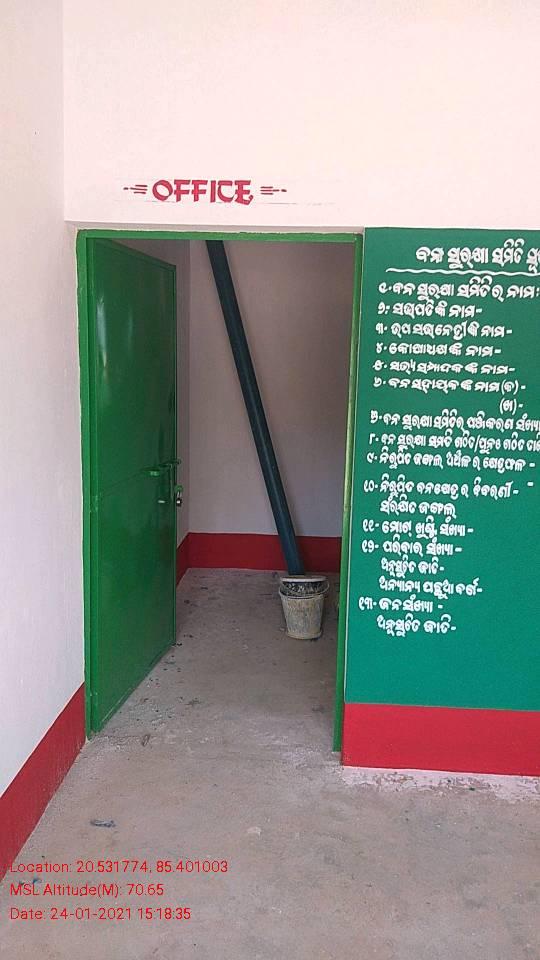 OFFICE
ବନ ସୁରକ୍ଷା ସମିତି
୧. ବନ ସୁରକ୍ଷା ସମିତିର ନାମ:
୨. ସଭାପତିଙ୍କ ନାମ-
୩. ଉପ ସଭାନେତ୍ରୀଙ୍କ ନାମ-
୪. କୋଷାଧ୍ୟକ୍ଷଙ୍କ ନାମ-
୫. ସଭ୍ୟ ସମ୍ପାଦକଙ୍କ ନାମ-
୬. ବନ ସହାୟକଙ୍କ ନାମ (କ)-
(ଖ)-
୭. ବନ ସୁରକ୍ଷା ସମିତିର ପଞ୍ଜିକରଣ ସଂଖ୍ୟା
୮. ବନ ସୁରକ୍ଷା ସମିତି ଗଠିତ/ପୁନଃ ଗଠିତ
୯. ନିରୁପିତ ଜଙ୍ଗଲ ଅଞ୍ଚଳର କ୍ଷେତ୍ରଫଳ -
୧୦. ନିରୁପିତ ବନକ୍ଷେତ୍ର ର ବିବରଣୀ-
ସଂରକ୍ଷିତ ଜଙ୍ଗଲ
୧୧. ମୋଟ ଖୁଣ୍ଟି ସଂଖ୍ୟା -
୧୨. ପରିବାର ସଂଖ୍ୟା -
ଅନୁସୂଚିତ ଜାତି-
ଅନ୍ୟାନ୍ୟ ପଛୁଆ ବର୍ଗ-
୧୩. ଜନସଂଖ୍ୟା -
ଅନୁସୂଚିତ ଜାତି-
Location: 20.531774, 85.401003
MSL Altitude(M): 70.65
Date: 24-01-2021 15:18:35